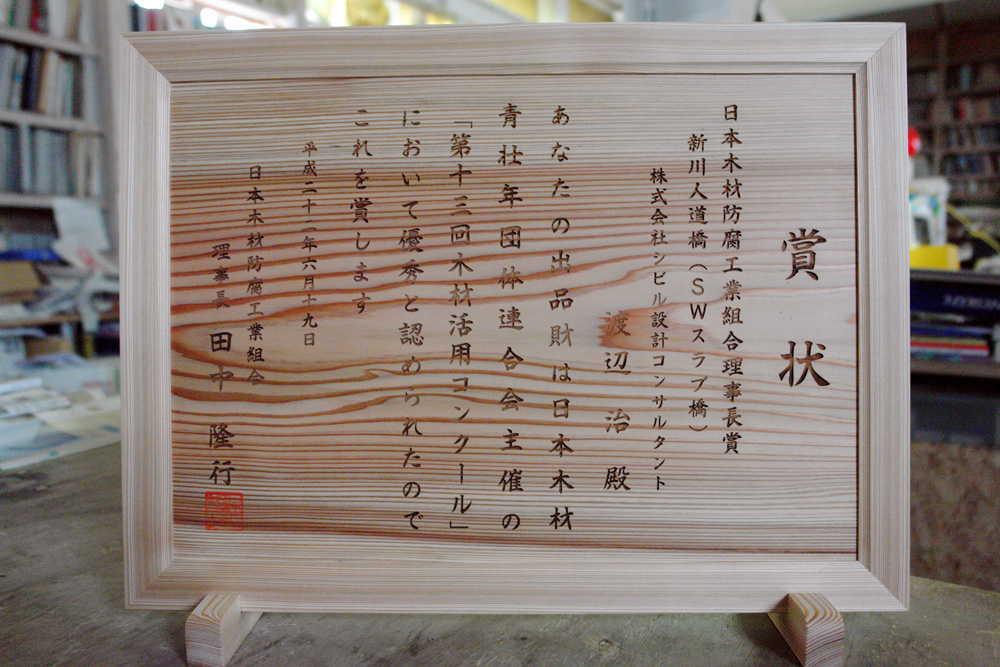 賞状
日本木材防腐工業組合理事長賞
新川人道橋(SWスラブ橋)
株式会社シビル設計コンサルタント
渡辺治殿
あなたの出品財は日本木材
青壮年団体連合会主催の
「第十三回木材活用コンクール」
において優秀と認められたので
これを賞します
平成二十二年六月十九日
日本木材防腐工業組合
理事長 田中隆行